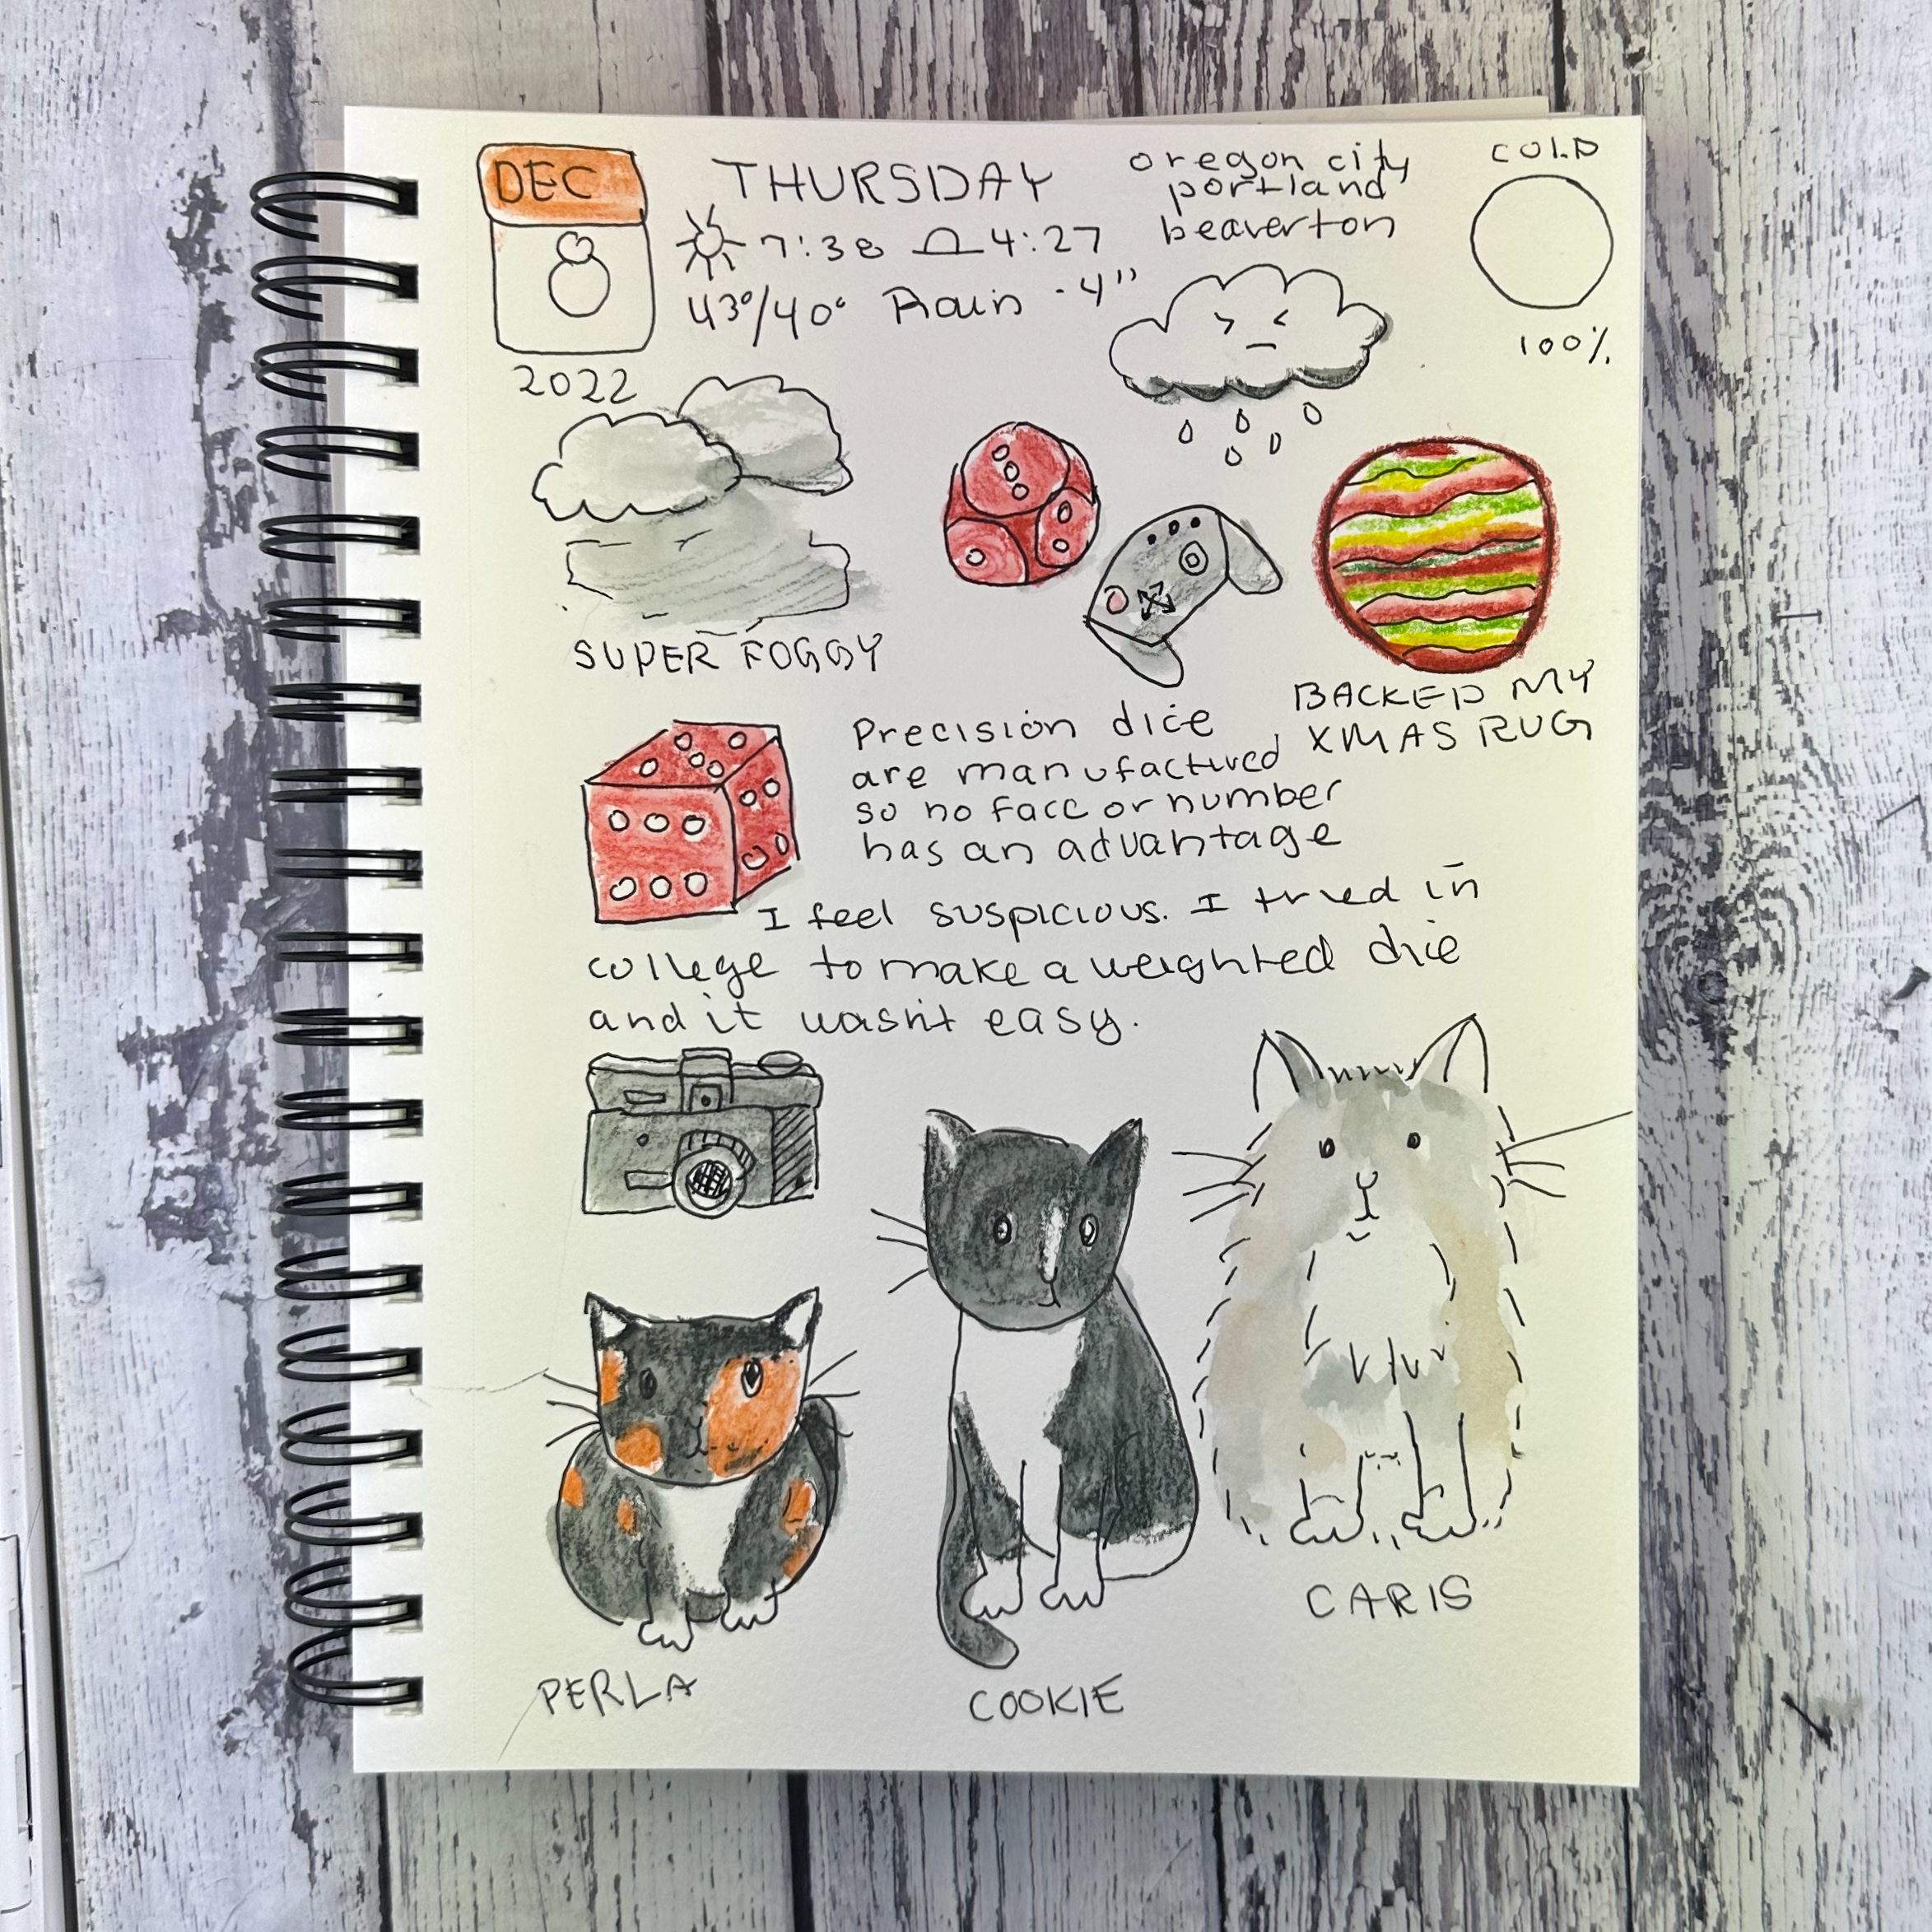 DEC
8
2022
THURSDAY
7:38 4:27
43°/40° Rain .4"
oregon city
portland
beaverton
COLD
100%
SUPER FOGGY
BACKED MY
XMAS RUG
Precision dice
are manufactured
so no face or number
has an advantage
I feel suspicious. I tried in
college to make a weighted die
and it wasn't easy.
PERLA
COOKIE
CARIS